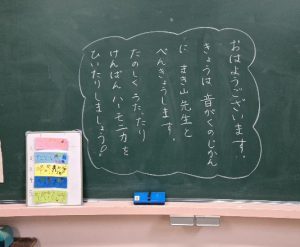 おはようございます。
きょうは 音がくのじかん
に まき山先生と
べんきょうします。
たのしく うたったり
けんばんハーモニカを
ひいたりしましょう♪